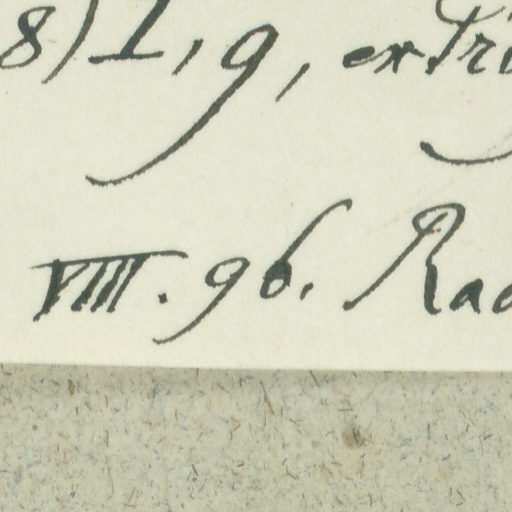 8) I, 9, ex Tri
VIII. 96. Rad